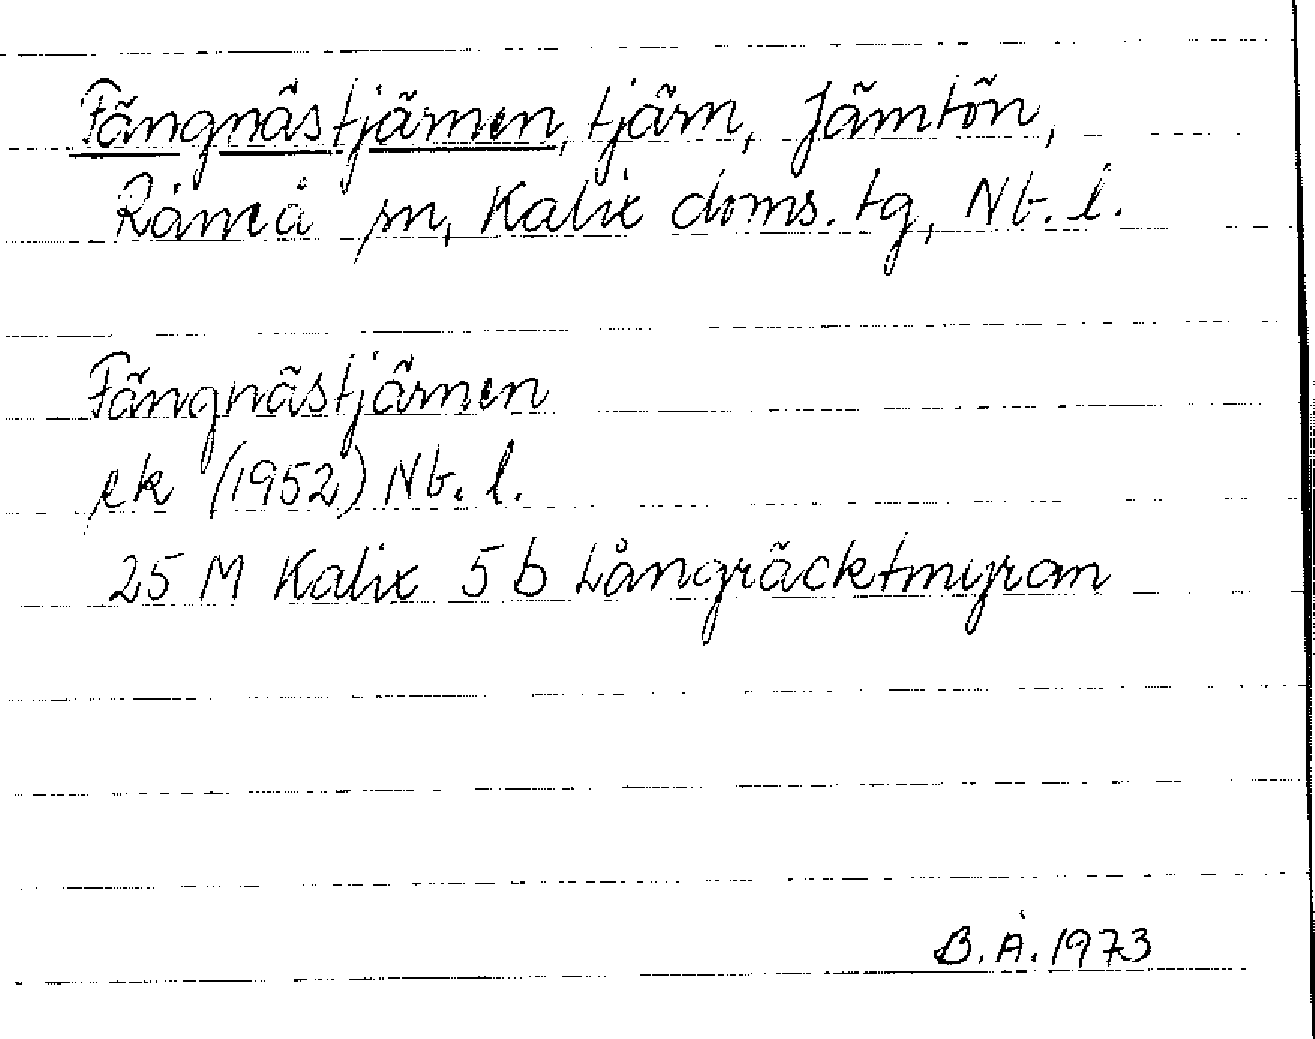 Fängnästjärnen, tjärn, Jämtön,
Råneå sn, Kalix doms. tg, Nb. l.
Fängnästjärnen
ek (1952) Nb. l.
25 M Kalix 5 b Långräcktmyran
B.Å. 1973